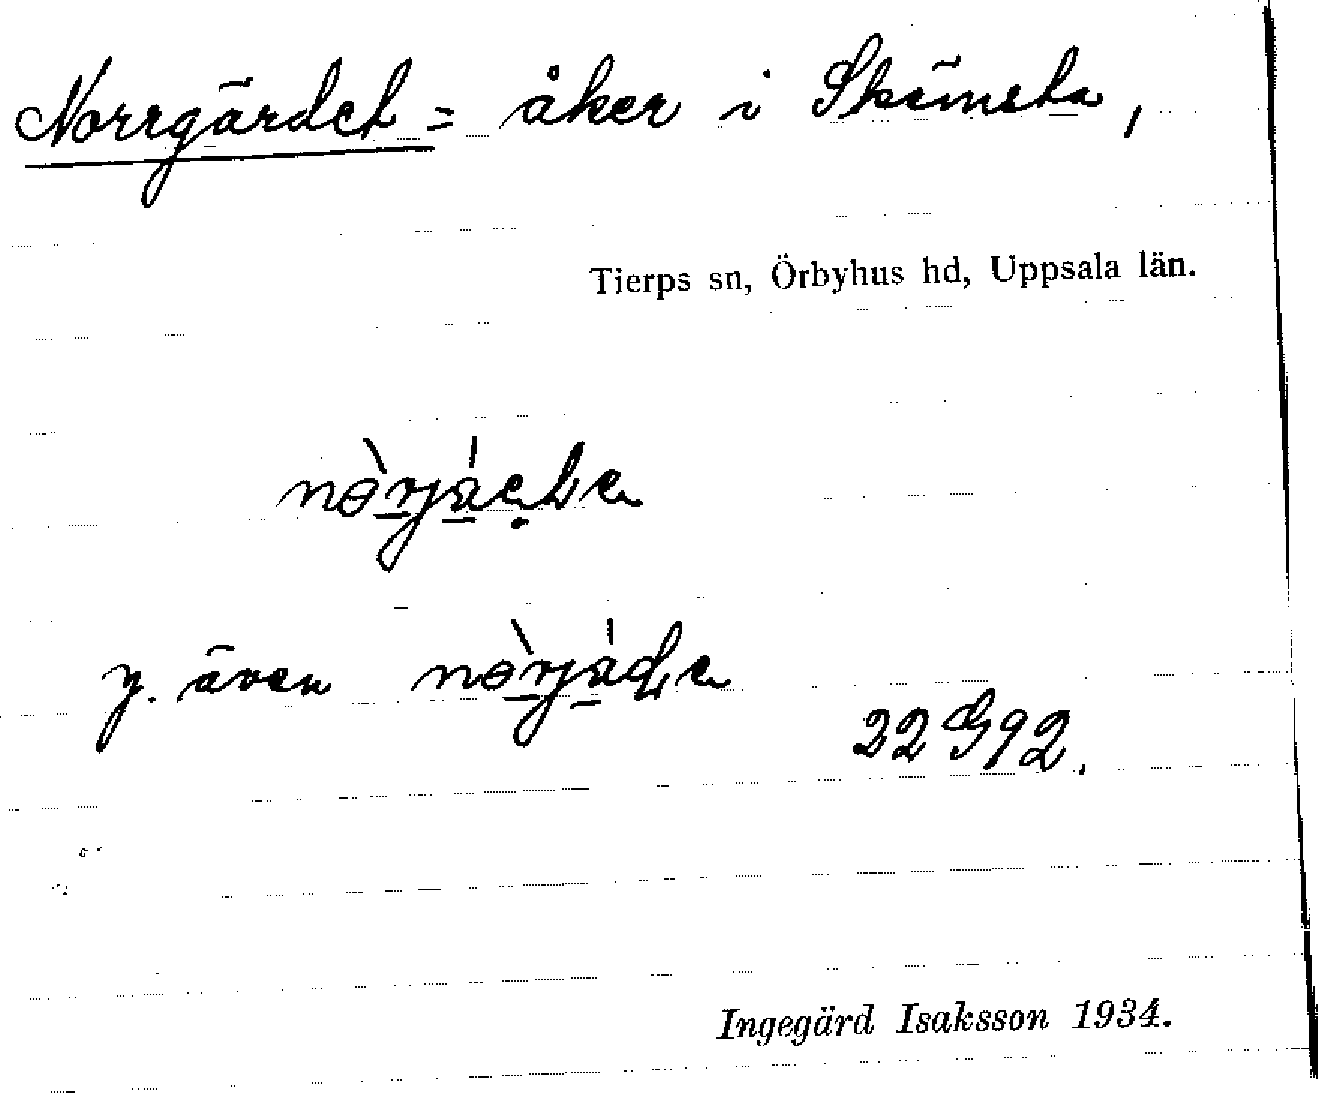 Norrgärdet = åker i Skämsta,
Tierps sn, Örbyhus hd, Uppsala län.
y. även
22 G 92.
Ingegärd Isaksson 1934.